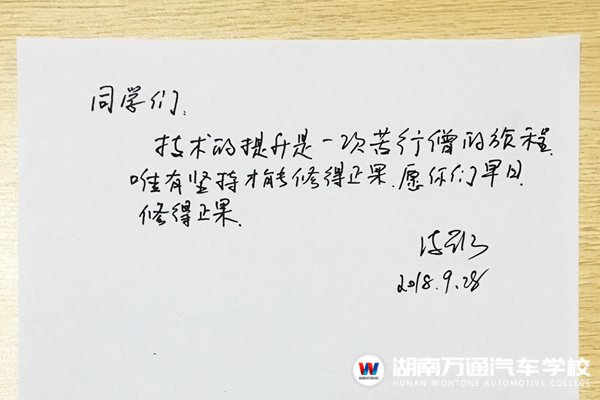 同学们:
技术的提升是一次苦行僧的旅程.
唯有坚持才能修得正果.愿你们早日
修得正果.
2018.9.28
W
WONTONE
湖南万通汽车学校
HUNAN WONTONE AUTOMOTIVE COLLEGE